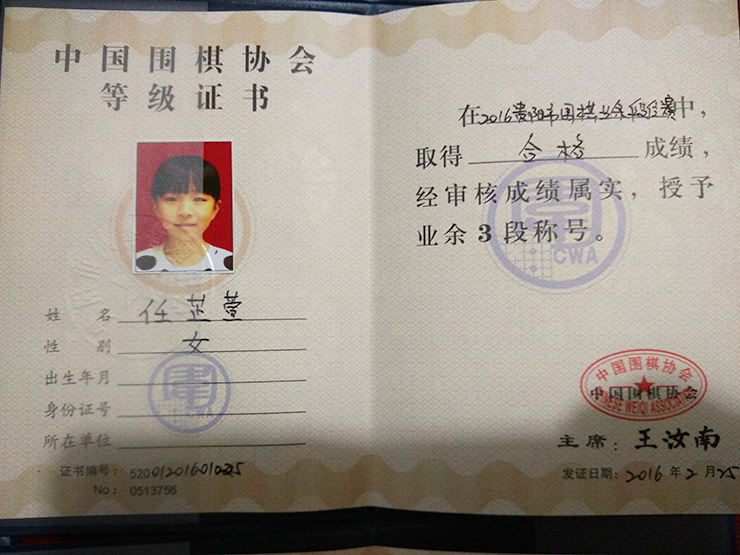 中国围棋协会
等级证书
姓 名 任芷萱
性 别 女
出生年月
身份证号
所在单位
证书编号: 5200120160
No: 0513756
在2016贵阳市围棋业余段位赛中,
取得 合格 成绩,
经审核成绩属实, 授予
业余3段称号。
CWA
CWA
中国围棋协会
中国围棋协会
CHINESE WEIQI ASSOCIATION
主席: 王汝南
发证日期: 2016年2月25